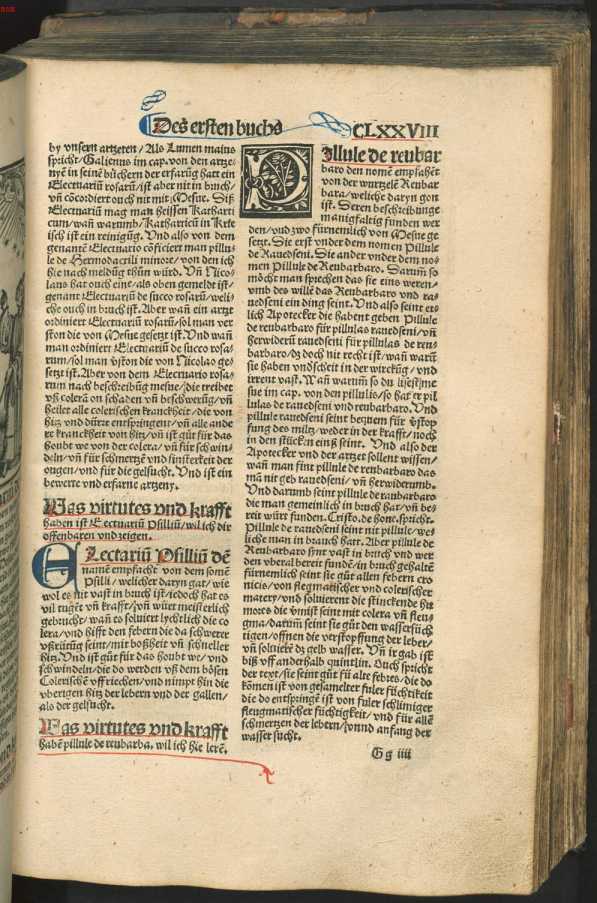 Des ersten buchs
CLXXVIII
by vnsern artzeten / Als Lumen maius
spricht / Galienus im cap. von den artze-
nyē in seinē büchern der erfarūg hatt ein
Electuariū rosarū / ist aber nit in bruch /
vñ cōcordiert ouch nit mit Mesue. Diß
Electuariū mag man heissen Katharti
cum / wañ warumb / Katharticū in Krie
isch ist ein reinigūg. Vnd also von dem
genantē Electuario cōficiert man pillu-
le de Hermodactili minore / von den ich
hie nach meldūg thůn würd. Vñ Nico-
laus hat ouch eint / als oben gemeldt ist /
genant Electuariū de succo rosarū / weli-
che ouch in bruch ist. Aber wañ ein artzt
ordiniert Electuariū rosarū / sol man ver
ston die von Mesue gesetzt ist. Vnd wañ
man ordiniert Electuariū de succo rosa-
rum / sol man vston die von Nicolao ge-
setzt ist. Aber von dem Electuario rosa-
rum nach beschreibūg mesue / die treibet
vß colerā on schaden vñ beschwerūg / vñ
heilet alle colerischen kranckheit / die von
hitz vnd dürre entspringent / vñ alle ande
re kranckheit von hitz / vñ ist gůt für das
houbt we von der colera / vñ für schwin-
deln / vñ für schmertzē vnd finsterkeit der
ougen / vnd für die gelsucht. Vnd ist ein
bewerte vnd erfarne artzeny.
Was virtutes vnd krafft
haben ist Electuariū Psilliū / wil ich dir
offenbaren vnd zeigen.
Electariū Psilliū dē
namē empfacht von dem somē
Psilli / welicher daryn gat / wie
wol es nit vast in bruch ist / iedoch hat es
vil tugēt vñ krafft / so vñ würt meisterlich
gebrucht / wañ es soluiert lychtlich die co
lera / vnd hilfft den febern die da schwerer
vßrütūg seint / mit boßheit vñ schneller
hitz. Vnd ist gůt für das houbt we / vnd
schwindeln / die do werden vß dem bösen
Colerischē vffriechen / vnd nimpt hin die
vberigen hitz der lebern vnd der gallen /
als der gelsucht.
Was virtutes vnd krafft
habē pillule de reubarba. wil ich hie lerē.
Pillule de reubar
baro den nomē empfahēt
von der wurtzelē Reubar
bara / weliche daryn gon
ist. Deren beschreibunge
manigfaltig funden wer
den / vnd zwo fürnemlich von Mesue ge
setzt. Die erst vnder dem nomen Pillule
de Rauedseni. Die ander vnder dem no-
men Pillule de Reubarbaro. Darum̄ so
möcht man sprechen das sie eins weren /
vmb des willē das Reubarbaro vnd ra-
uedseni ein ding seint. Vnd also seint et-
lich Apotecker die habent geben Pillule
de reubarbaro für pillulas rauedseni / vñ
herwiderū rauedseni für pillulas de reu-
barbaro / dz doch nit recht ist / wañ warū
sie haben vndscheit in der wirckūg / vnd
irrent vast. Wañ warum̄ so du lisest me
sue im cap. von den pillulis / so hat er pil
lulas de rauedseni vnd reubarbaro. Vnd
pillule rauedseni seint bequem für vstop
fung des miltz / weder in der krafft / noch
in den stücken einß seint. Vnd also der
Apotecker vnd der artzet sollent wissen /
wañ man fint pillule de reubarbaro das
mā nit geb rauedseni / vñ herwiderumb.
Vnd darumb seint pillule de raubarbaro
die man gemeinlich in bruch hat / vñ be-
reit würt funden. Cristo. de hone. spricht.
Pillule de rauedseni seint nit pillule / we-
liche man in brauch hatt. Aber pillule de
Reubarbaro synt vast in bruch vnd wer
den vberal bereit fundē / in bruch gehaltē
fürnemlich seint sie gůt allen febern cro
nicis / von flegmatischer vnd colerischer
matery / vnd soluierent die stinckende hu
mores die vmist seint mit colera vñ fleu-
gma / darum̄ seint sie gůt den wassersüch
tigen / offnen die verstopffung der leber /
vñ soluierē dz gelb wasser. Vñ ir gab ist
biß vff anderhalb quintlin. Ouch spricht
der text / sie seint gůt fü alte febres / die do
kōmen ist von gesamelter fuler füchtikeit
die do entspringē ist von fuler schlimiger
fleugmatischer füchtigkeit / vnd für allē
schmertzen der lebern / so vnd anfang der
wasser sucht.
Gg iiii